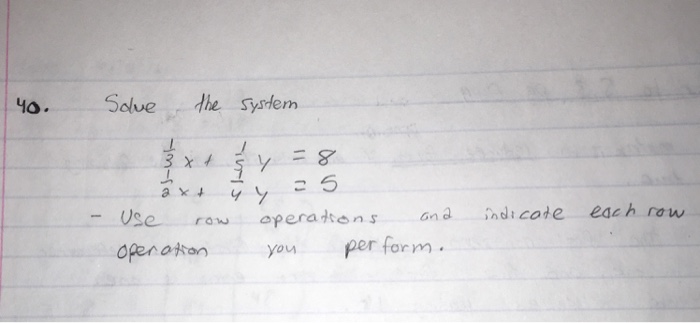 40. Solve the system
1/3 x + 1/5 y = 8
1/2 x + 1/4 y = 5
- Use row operations and indicate each row
operation you perform.